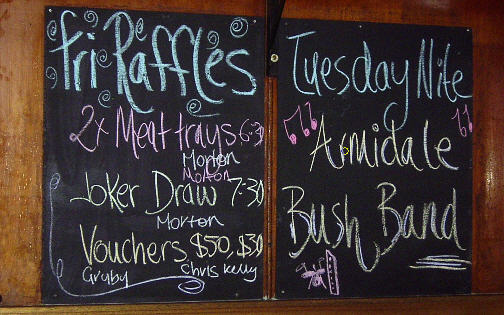 Fri Raffles
2x Meat trays 6-30
Morton
Morton
Joker Draw 7-30
Morton
Vouchers $50, $30
Gruby Chris Kelly
Tuesday Nite
Armidale
Bush Band